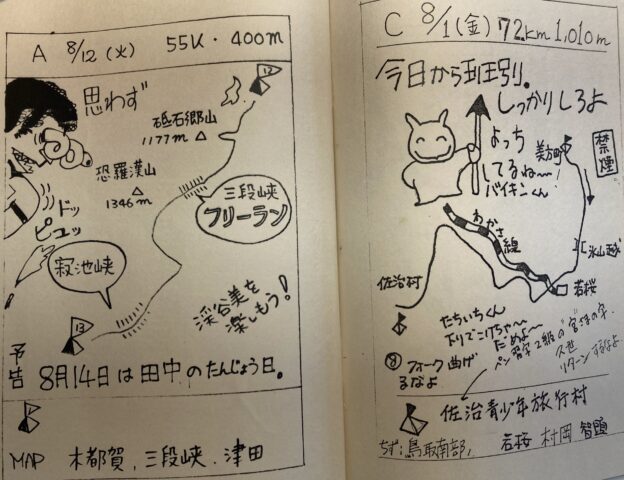 A 8/12(火) 55K・400m
思わず
砥石郷山
1177m
恐羅漢山
1346m
12
三段峡
フリーラン
ドッ
ピュッ
寂地峡
渓谷美を
楽しもう!
13
予告 8月14日は田中のたんじょう日。
MAP 木都賀,三段峡・津田
C 8/1(金) 72km 1,010m
今日から班別。
しっかりしろよ
よっち
してるね〜!
バイキンくん!
美方町
禁煙
わかさ線
氷山越
若桜
佐治村
たちいちくん
下りでこけちゃ〜
だめよ〜
8 フォーク曲げ
るなよ
ペン習字2級の
リターンするなよ
佐治青少年旅行村
ちず:鳥取南部, 若桜 村岡 智頭